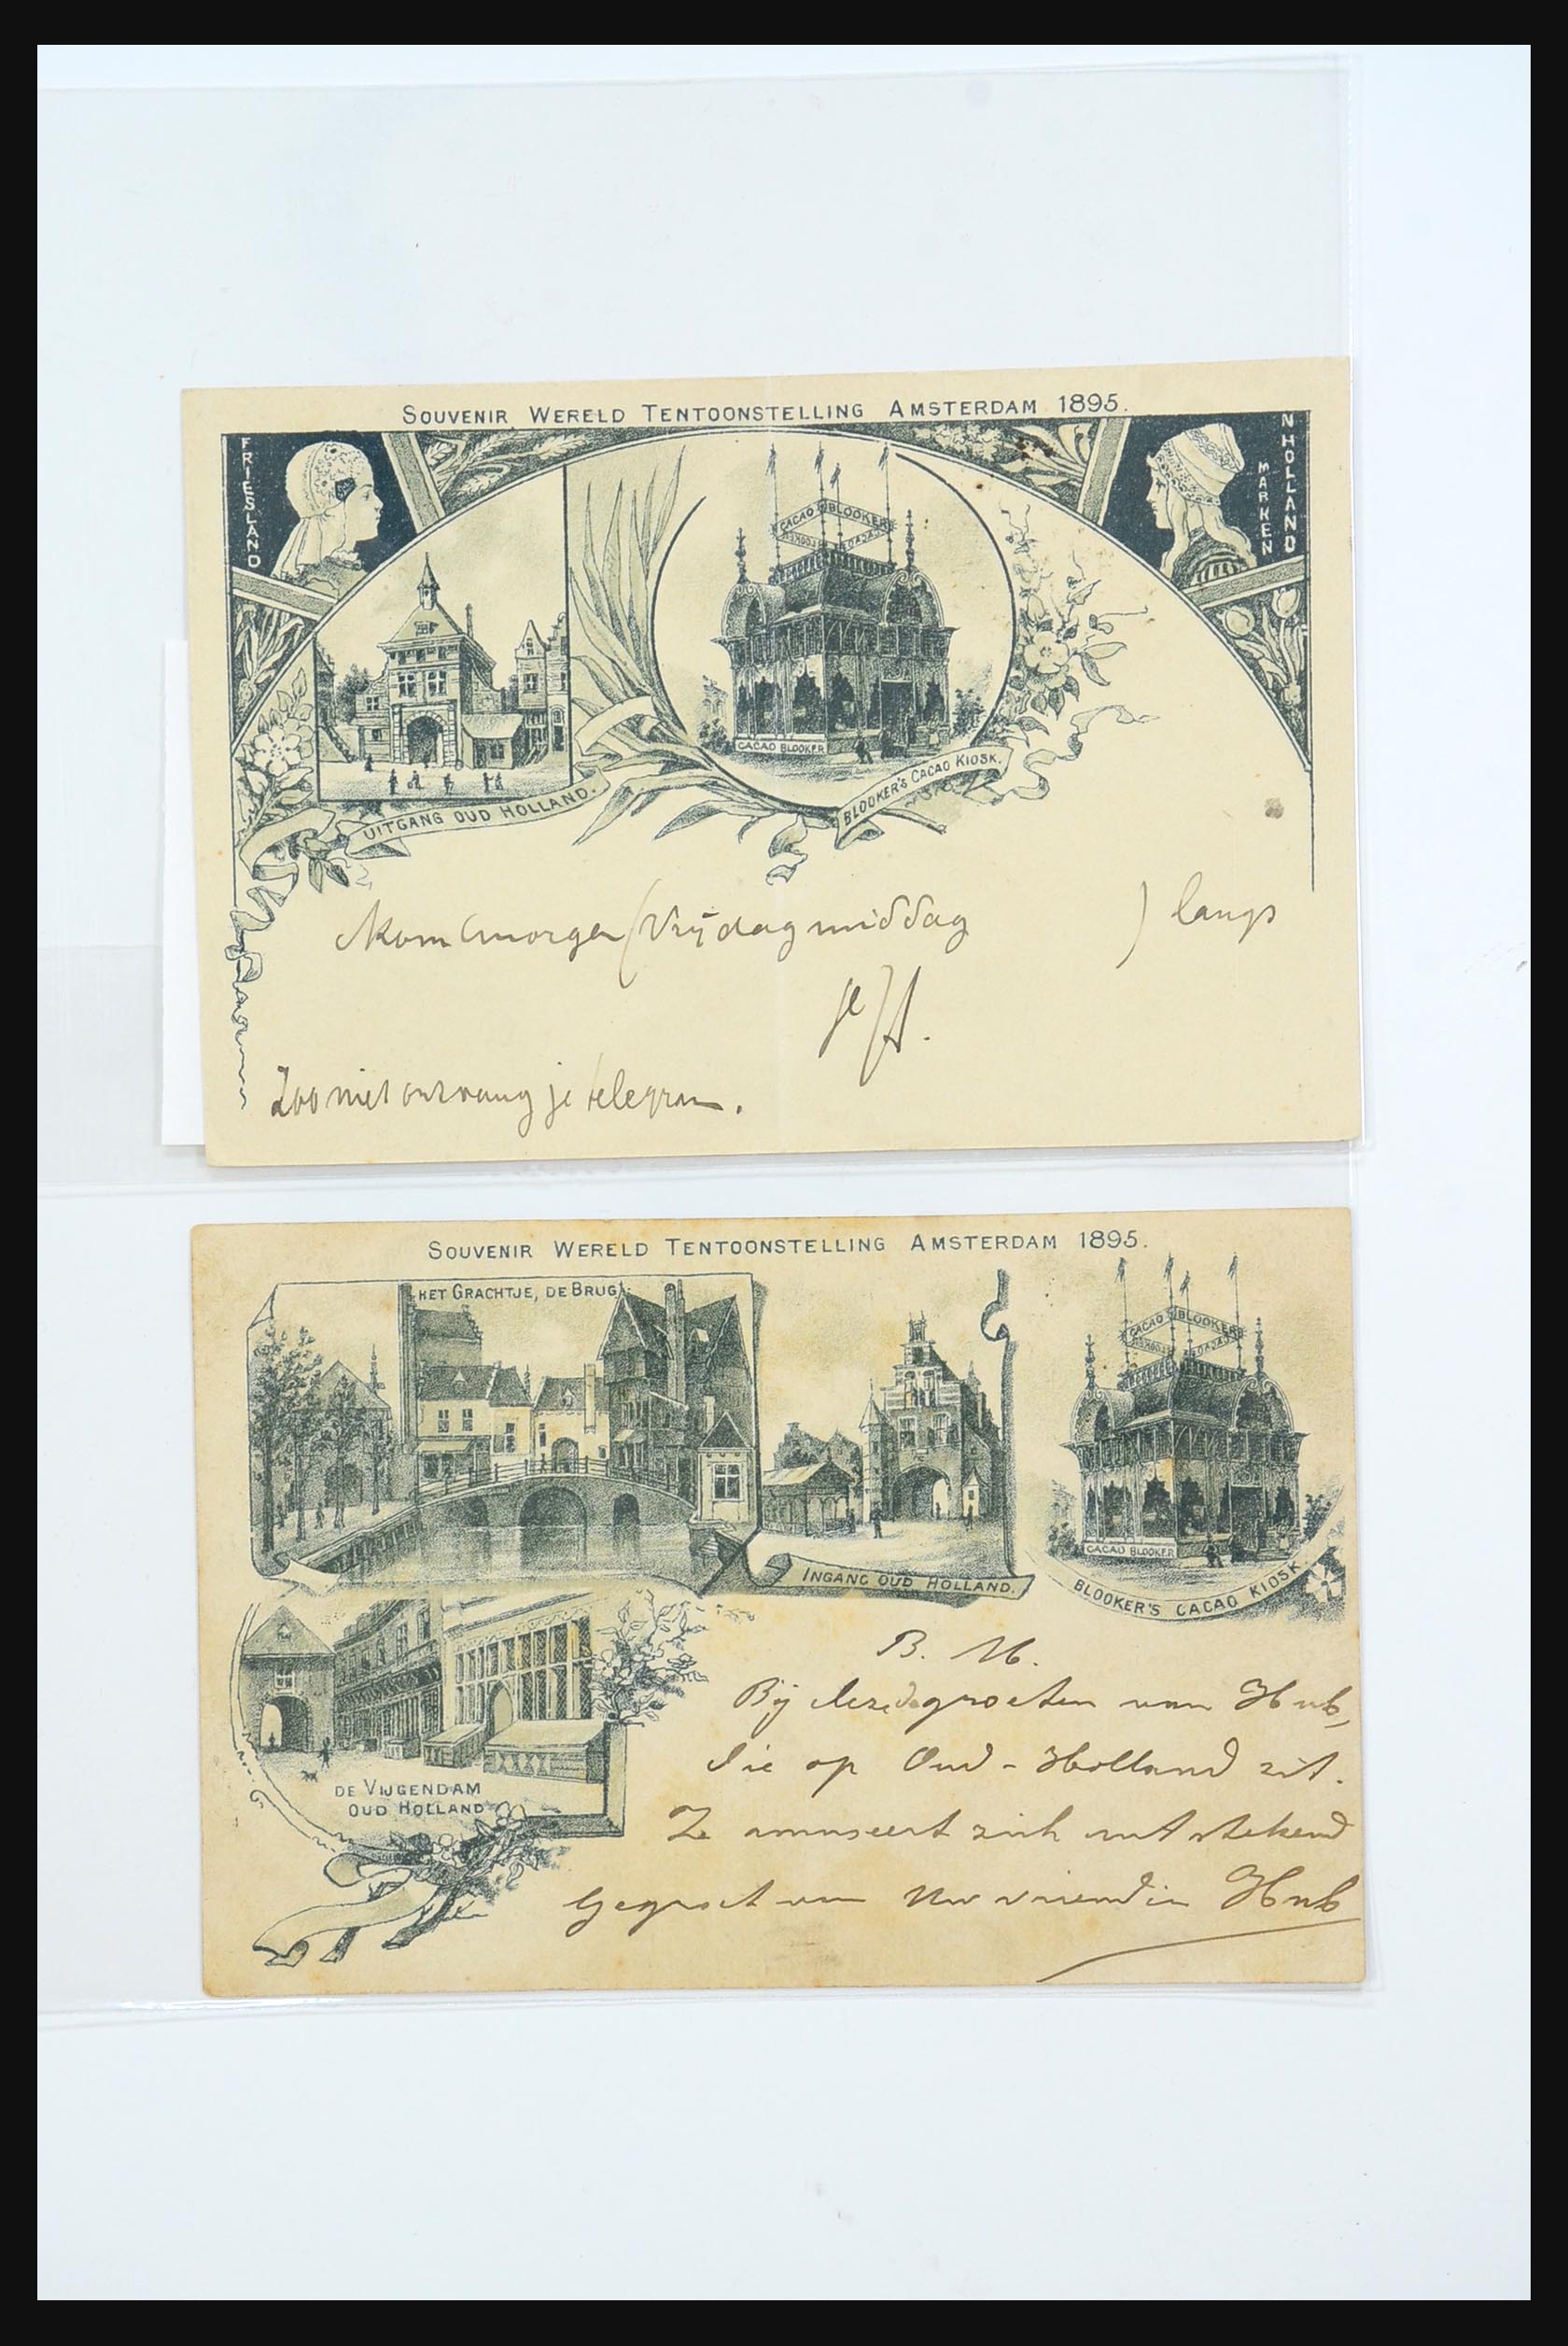 SOUVENIR WERELD TENTOONSTELLING AMSTERDAM 1895.
FRIESLAND
N HOLLAND
MARKEN
CACAO BLOOKER
CACAO BLOOKER
UITGANG OUD HOLLAND.
BLOOKER'S CACAO KIOSK.
Kom morgen (Vrijdag middag ) langs
je H.
Zoo niet ontvang je telegram.
SOUVENIR WERELD TENTOONSTELLING AMSTERDAM 1895.
HET GRACHTJE, DE BRUG.
CACAO BLOOKER
CACAO BLOOKER
INGANG OUD HOLLAND.
BLOOKER'S CACAO KIOSK.
DE VIJGENDAM
OUD HOLLAND
B. M.
Bij deze de groeten van Hub,
die op Oud-Holland zit.
Ze amuseert zich uitstekend
Gegroet van Uw vriendin Hub